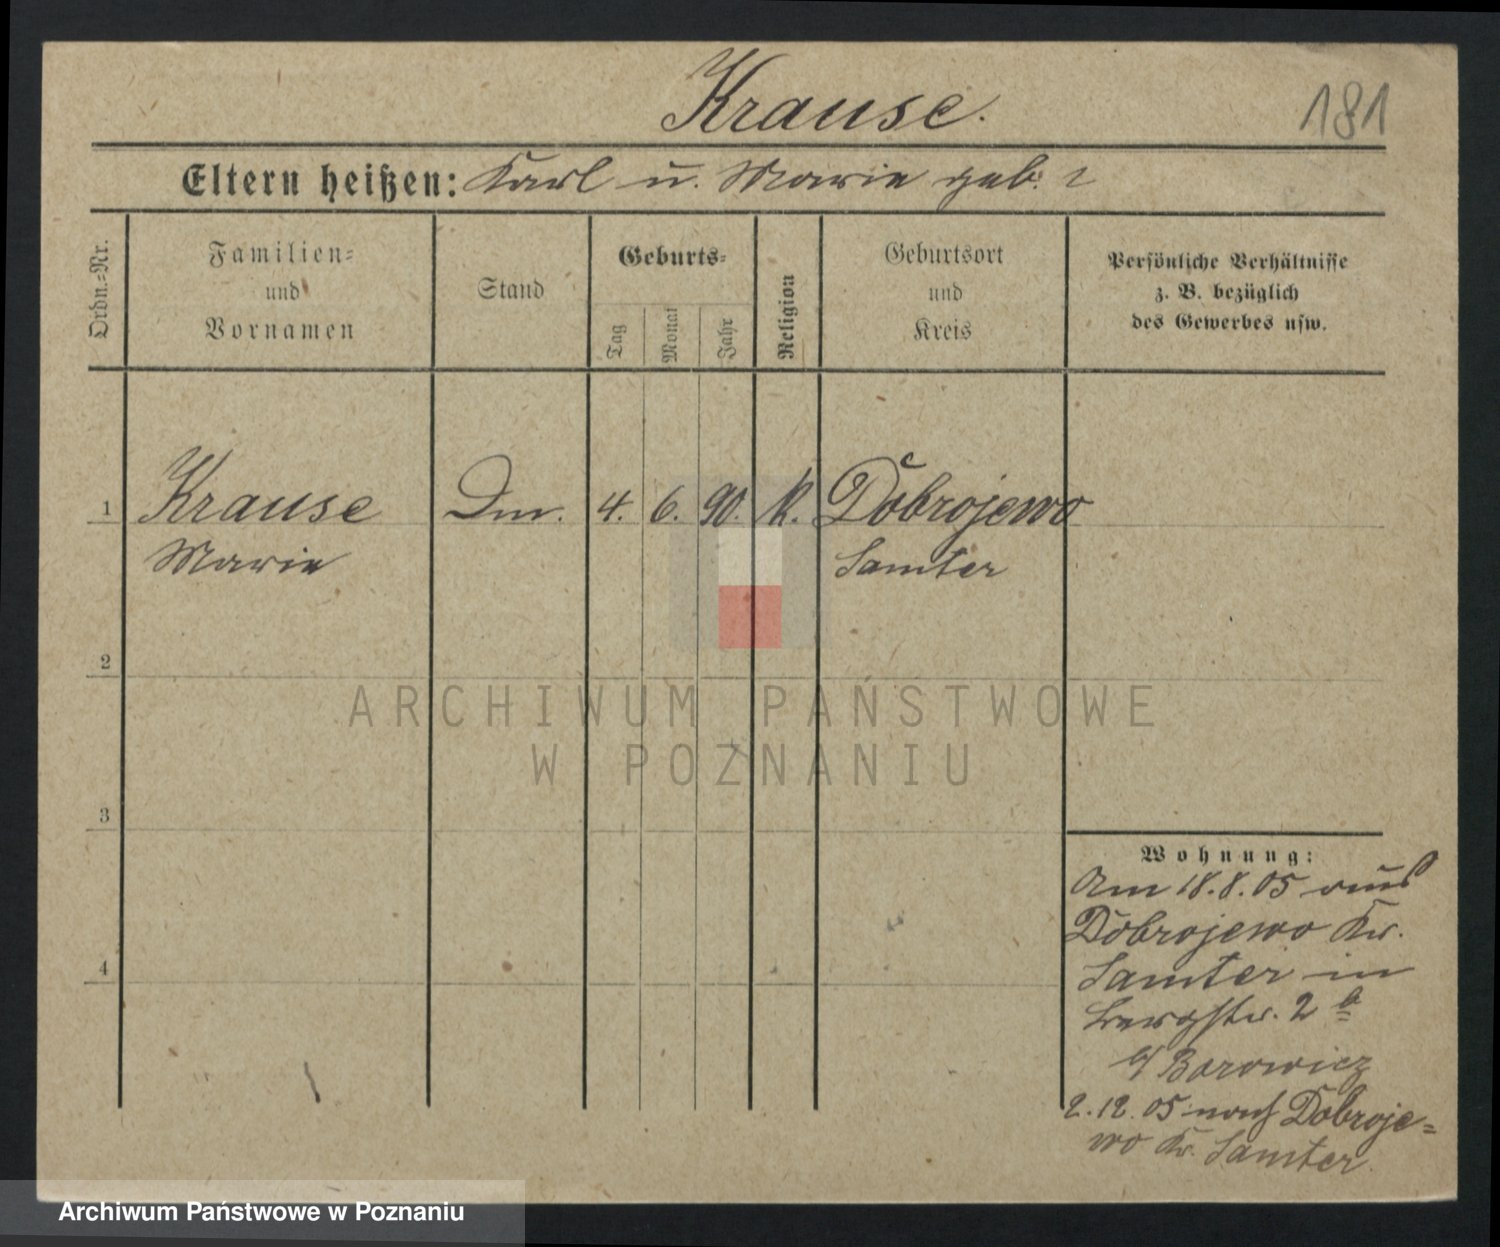 Krause.
181
Eltern heißen: Karl u. Marie geb. ?
Ordn.-Nr.
Familien-
und
Vornamen
Stand
Geburts-
Tag
Monat
Jahr
Religion
Geburtsort
und
Kreis
Persönliche Verhältnisse
z. B. bezüglich
des Gewerbes usw.
1 Krause Dm. 4. 6. 90. k. Dobrojewo
Marie Samter
2
3
4
Wohnung:
Am 18.8.05 aus
Dobrojewo Kr.
Samter in
Bergstr. 2 b
b/ Borowicz
2.12.05 nach Dobroje-
wo Kr. Samter
ARCHIWUM PAŃSTWOWE
W POZNANIU
Archiwum Państwowe w Poznaniu